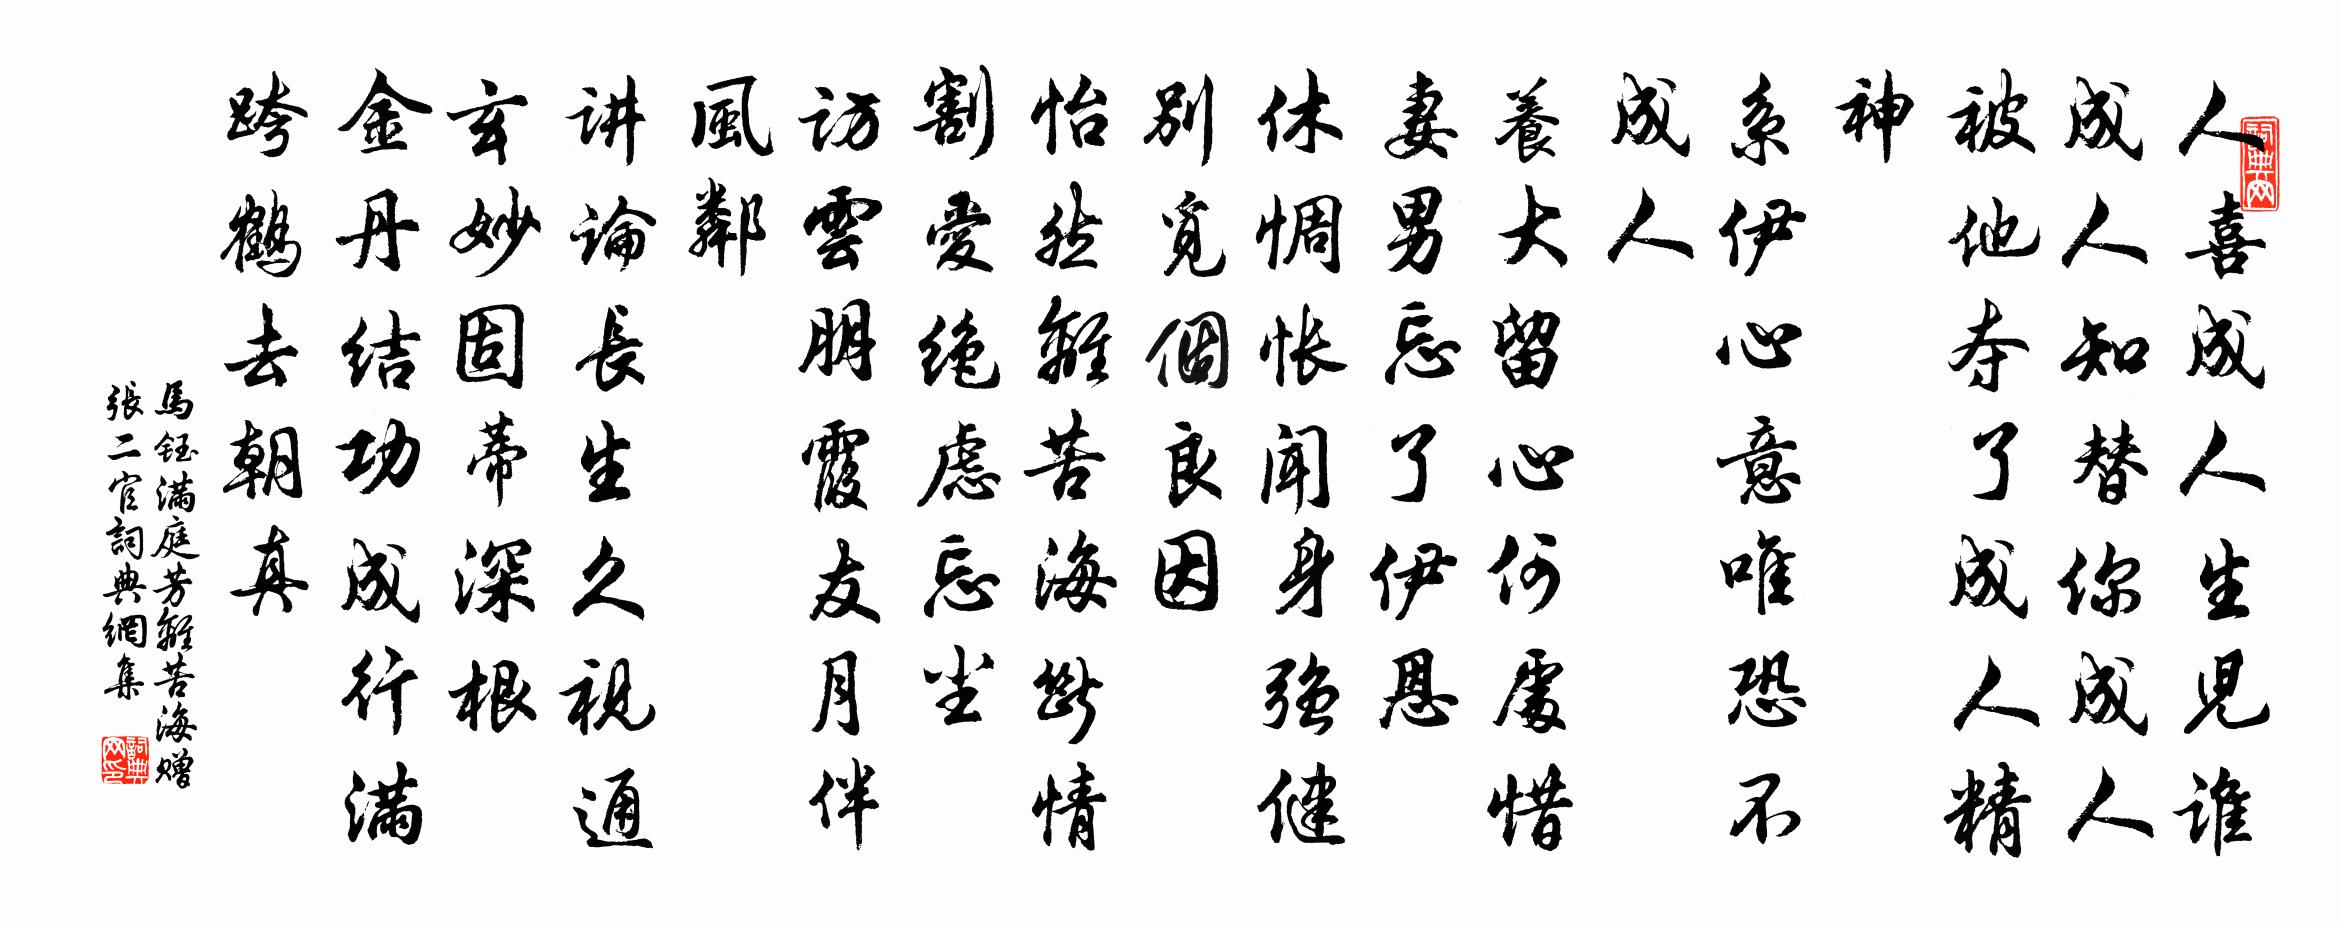 人喜成人生児谁
成人知替你成人
被他夺了成人精
神
系伊心意唯恐不
成人
養大留心何處惜
妻男忘了伊恩
休惆怅闻身强健
别觅個良因
怡然離苦海断情
割愛绝虑忘尘
訪雲朋霞友月伴
風鄰
讲論長生久視通
玄妙固蒂深根
金丹结功成行满
跨鶴去朝真
馬钰满庭芳離苦海赠
張二官詞典網集
詞典网
詞典网印